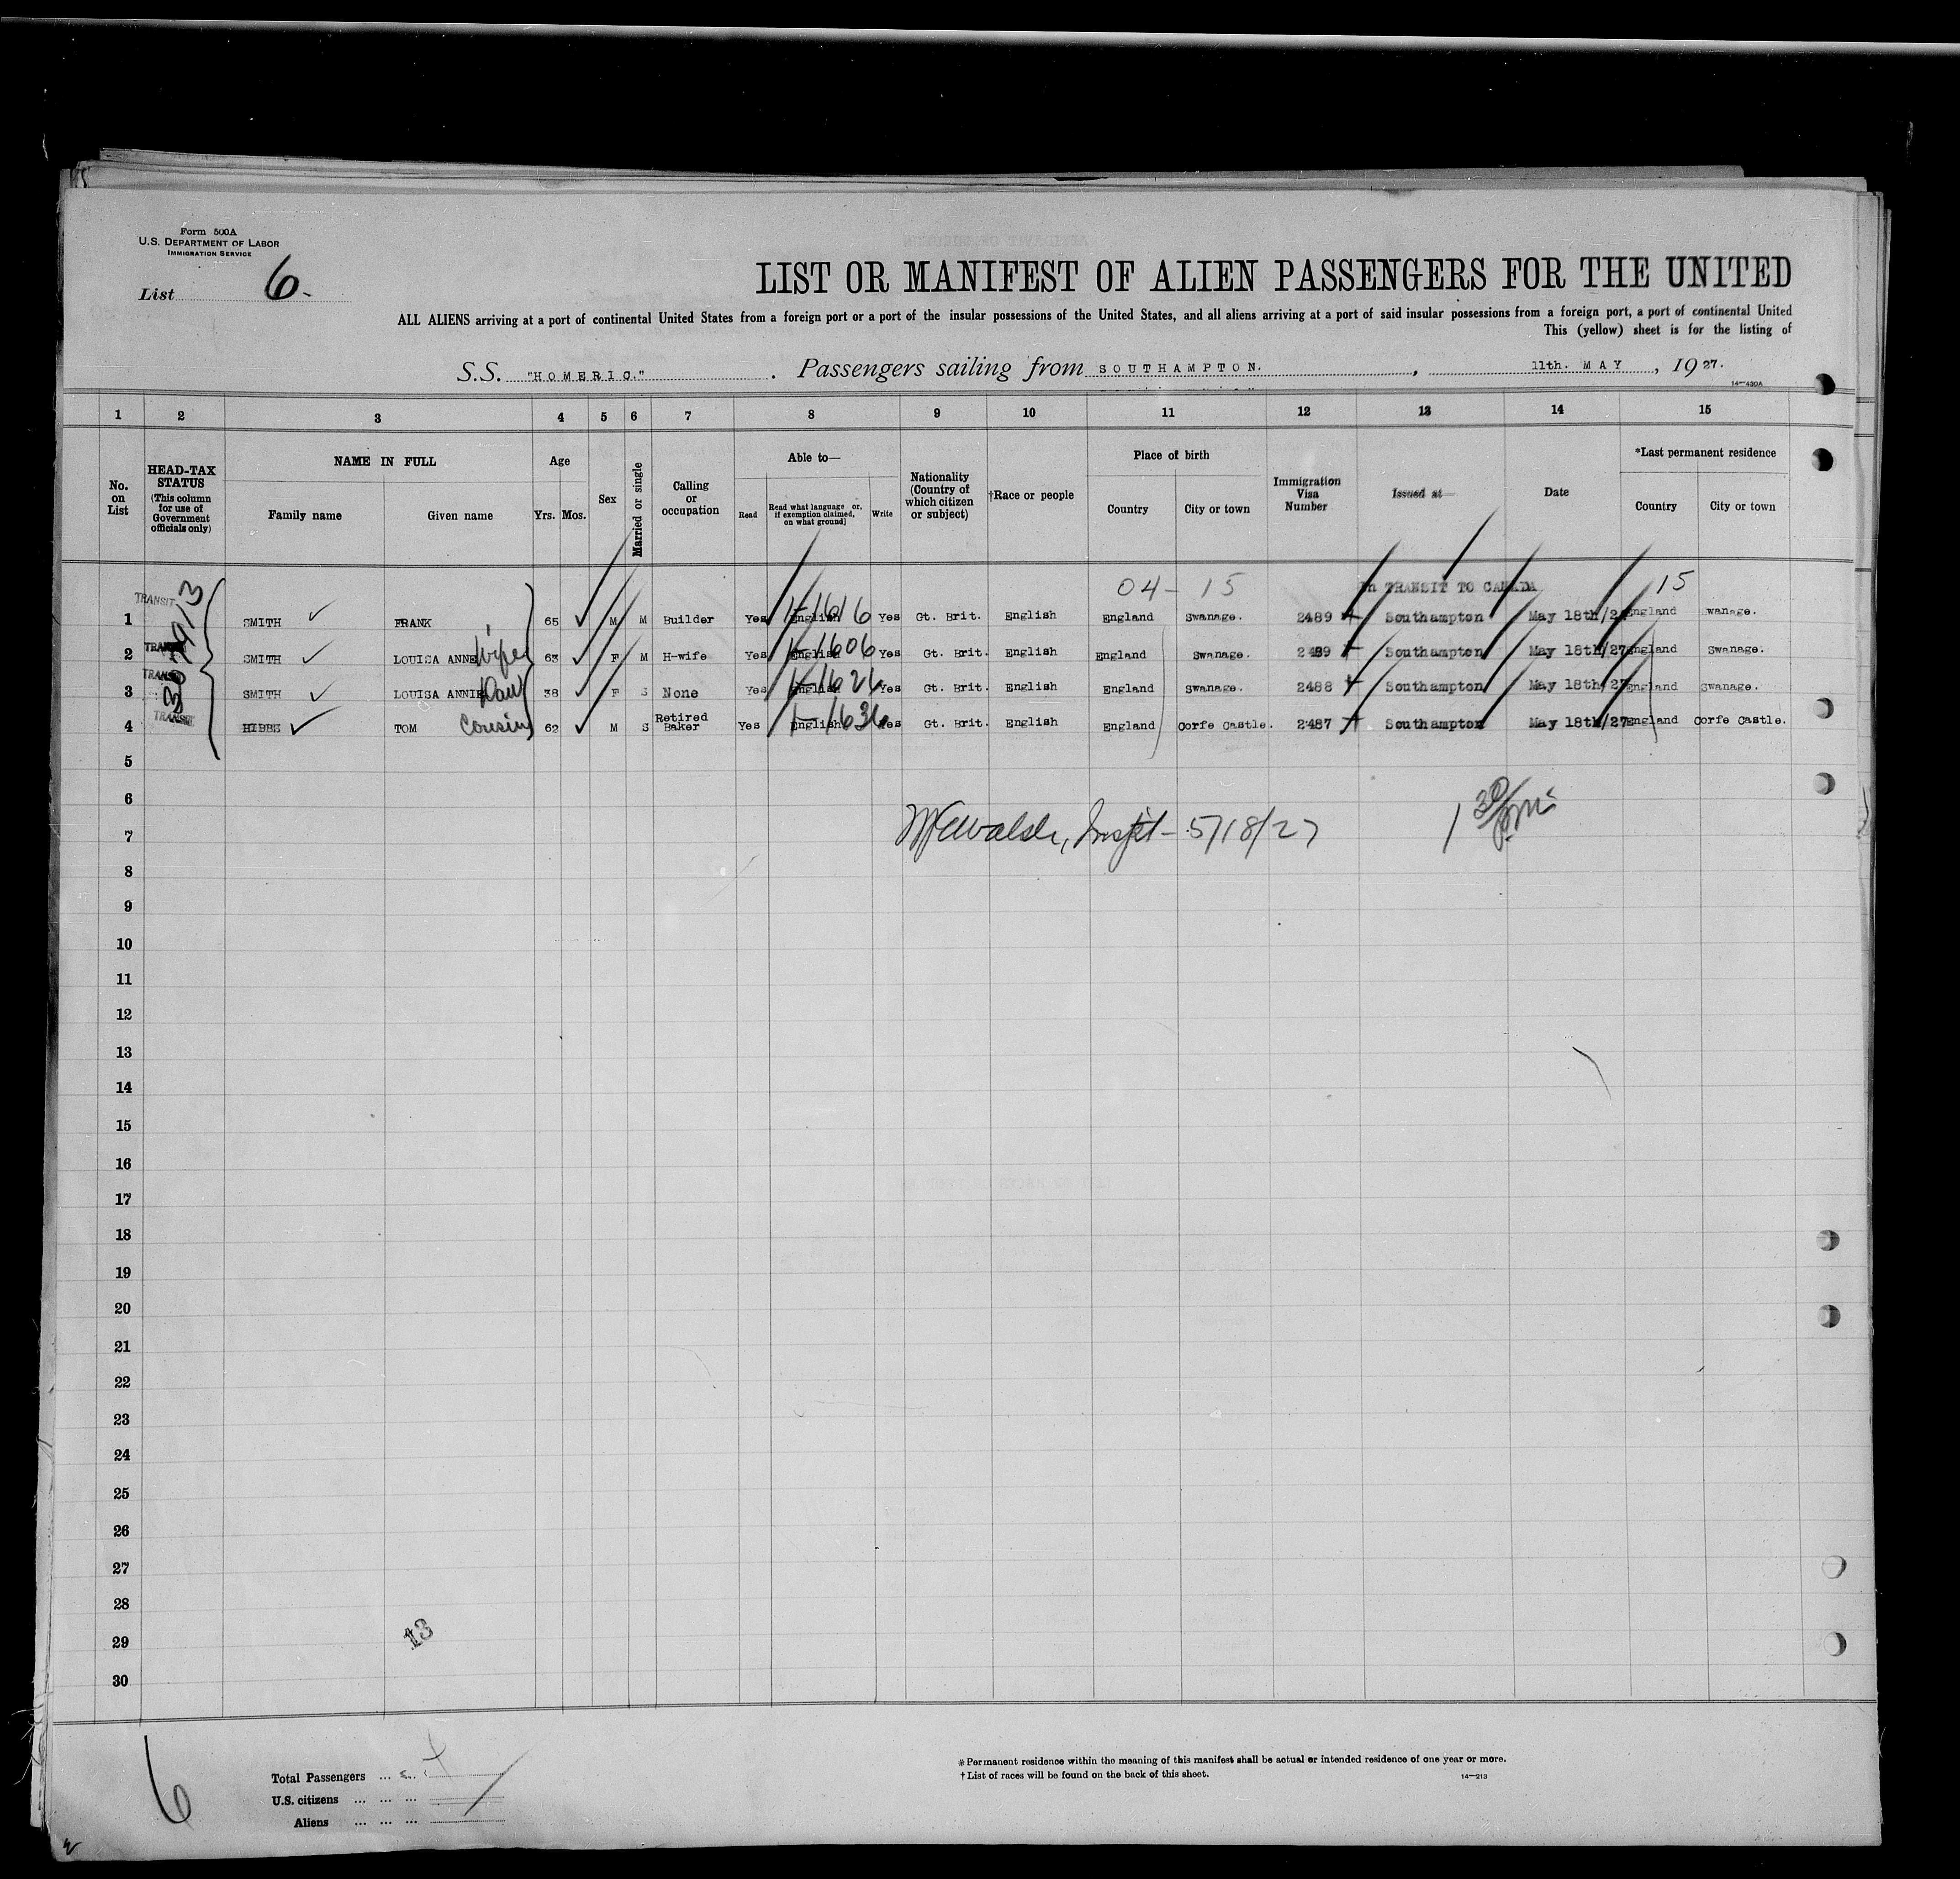 Form 500A
U.S. DEPARTMENT OF LABOR
IMMIGRATION SERVICE
List 6
LIST OR MANIFEST OF ALIEN PASSENGERS FOR THE UNITED
ALL ALIENS arriving at a port of continental United States from a foreign port or a port of the insular possessions of the United States, and all aliens arriving at a port of said insular possessions from a foreign port, a port of continental United
This (yellow) sheet is for the listing of
S.S. "HOMERIC." . Passengers sailing from SOUTHAMPTON. , 11th. MAY , 1927.
14-430A
1 2 3 4 5 6 7 8 9 10 11 12 13 14 15
No. on List
HEAD-TAX STATUS (This column for use of Government officials only)
NAME IN FULL
Family name Given name
Age
Yrs. Mos.
Sex
Married or single
Calling or occupation
Able to—
Read Read what language or, if exemption claimed, on what ground] Write
Nationality (Country of which citizen or subject)
†Race or people
Place of birth
Country City or town
Immigration Visa Number
Issued at—
Date
*Last permanent residence
Country City or town
04 - 15 In TRANSIT TO CANADA 15
1 TRANSIT SMITH FRANK 65 M M Builder Yes English 1-1616 Yes Gt. Brit. English England Swanage. 2489 Southampton May 18th/27 England Swanage.
2 TRANSIT SMITH LOUISA ANNE Wife 63 F M H-wife Yes English 1-1606 Yes Gt. Brit. English England Swanage. 2489 Southampton May 18th/27 England Swanage.
3 TRANSIT SMITH LOUISA ANNIE Dau 38 F S None Yes English 1-1626 Yes Gt. Brit. English England Swanage. 2488 Southampton May 18th/27 England Swanage.
4 TRANSIT HIBBS TOM Cousin 62 M S Retired Baker Yes English 1-1636 Yes Gt. Brit. English England Corfe Castle. 2487 Southampton May 18th/27 England Corfe Castle.
5
6
7 Walsh, Inspt - 5/18/27 1 30 pm
8
9
10
11
12
13
14
15
16
17
18
19
20
21
22
23
24
25
26
27
28
29
13
30
6
Total Passengers ... ...
U.S. citizens ... ... ...
Aliens ... ... ...
*Permanent residence within the meaning of this manifest shall be actual or intended residence of one year or more.
†List of races will be found on the back of this sheet.
14-213